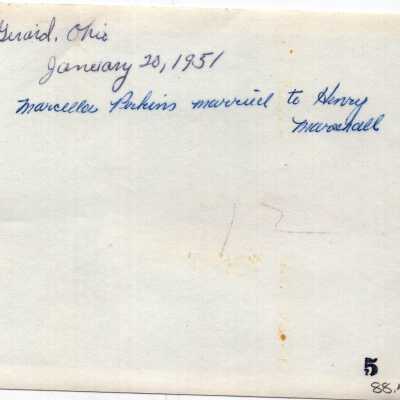 Gerard, Ohio
January 20, 1951
Marcella Perkins married to Henry
Marshall
12
5
88.